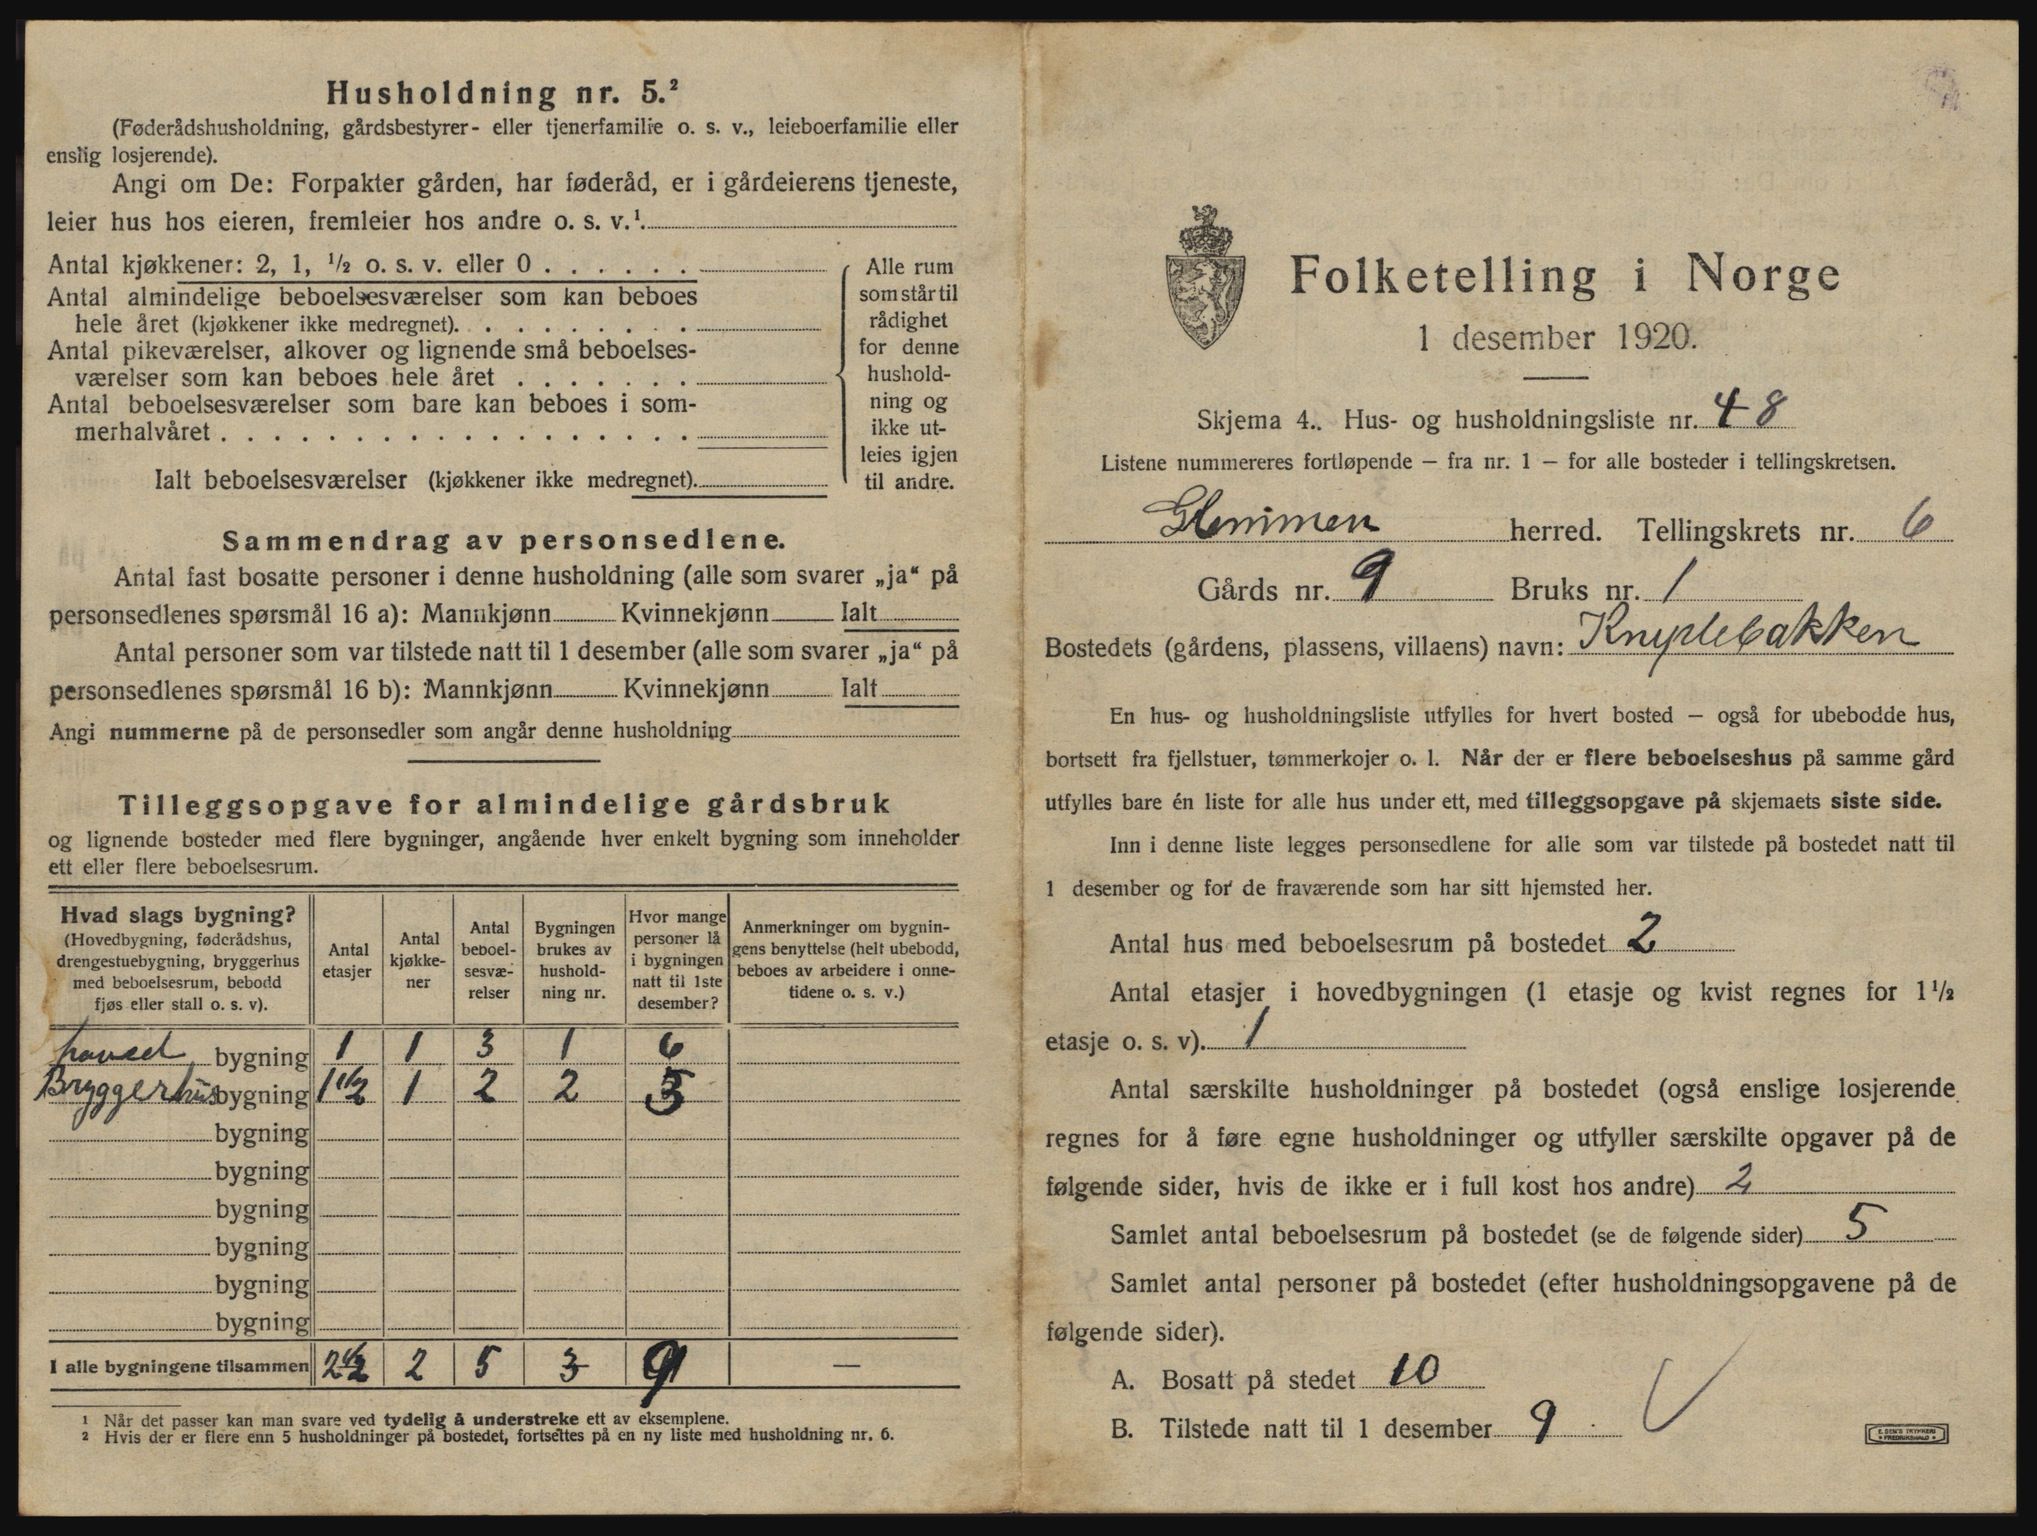 Husholdning nr. 5.²
(Føderådshusholdning, gårdsbestyrer- eller tjenerfamilie o. s. v., leieboerfamilie eller
enslig losjerende).
Angi om De: Forpakter gården, har føderåd, er i gårdeierens tjeneste,
leier hus hos eieren, fremleier hos andre o. s. v.¹.
Antal kjøkkener: 2, 1, ½ o. s. v. eller 0 . . . . . .
Antal almindelige beboelsesværelser som kan beboes
hele året (kjøkkener ikke medregnet). . . . . . . . .
Antal pikeværelser, alkover og lignende små beboelses-
værelser som kan beboes hele året . . . . . . .
Antal beboelsesværelser som bare kan beboes i som-
merhalvåret . . . . . . . . . . . . . . . . . .
Ialt beboelsesværelser (kjøkkener ikke medregnet).
Alle rum
som står til
rådighet
for denne
hushold-
ning og
ikke ut-
leies igjen
til andre.
Sammendrag av personsedlene.
Antal fast bosatte personer i denne husholdning (alle som svarer „ja“ på
personsedlenes spørsmål 16 a): Mannkjønn Kvinnekjønn Ialt
Antal personer som var tilstede natt til 1 desember (alle som svarer „ja“ på
personsedlenes spørsmål 16 b): Mannkjønn Kvinnekjønn Ialt
Angi nummerne på de personsedler som angår denne husholdning
Tilleggsopgave for almindelige gårdsbruk
og lignende bosteder med flere bygninger, angående hver enkelt bygning som inneholder
ett eller flere beboelsesrum.
Hvad slags bygning?
(Hovedbygning, føderådshus,
drengestuebygning, bryggerhus
med beboelsesrum, bebodd
fjøs eller stall o. s. v).
Antal
etasjer
Antal
kjøkke-
ner
Antal
beboel-
sesvæ-
relser
Bygningen
brukes av
hushold-
ning nr.
Hvor mange
personer lå
i bygningen
natt til 1ste
desember?
Anmerkninger om bygnin-
gens benyttelse (helt ubebodd,
beboes av arbeidere i onne-
tidene o. s. v.)
bygning 1 1 3 1 6
Bryggerhus bygning 1½ 1 2 2 3
bygning
bygning
bygning
bygning
bygning
bygning
I alle bygningene tilsammen 2½ 2 5 3 9 —
¹ Når det passer kan man svare ved tydelig å understreke ett av eksemplene.
² Hvis der er flere enn 5 husholdninger på bostedet, fortsettes på en ny liste med husholdning nr. 6.
Folketelling i Norge
1 desember 1920.
Skjema 4.. Hus- og husholdningsliste nr. 48
Listene nummereres fortløpende – fra nr. 1 – for alle bosteder i tellingskretsen.
Glemmen herred. Tellingskrets nr. 6
Gårds nr. 9 Bruks nr. 1
Bostedets (gårdens, plassens, villaens) navn: Kniplebakken
En hus- og husholdningsliste utfylles for hvert bosted – også for ubebodde hus,
bortsett fra fjellstuer, tømmerkojer o. l. Når der er flere beboelseshus på samme gård
utfylles bare én liste for alle hus under ett, med tilleggsopgave på skjemaets siste side.
Inn i denne liste legges personsedlene for alle som var tilstede på bostedet natt til
1 desember og for de fraværende som har sitt hjemsted her.
Antal hus med beboelsesrum på bostedet 2
Antal etasjer i hovedbygningen (1 etasje og kvist regnes for 1½
etasje o. s. v). 1
Antal særskilte husholdninger på bostedet (også enslige losjerende
regnes for å føre egne husholdninger og utfyller særskilte opgaver på de
følgende sider, hvis de ikke er i full kost hos andre) 2
Samlet antal beboelsesrum på bostedet (se de følgende sider) 5
Samlet antal personer på bostedet (efter husholdningsopgavene på de
følgende sider).
A. Bosatt på stedet 10
B. Tilstede natt til 1 desember 9
E. SEM'S TRYKKERI
FREDRIKSHALD